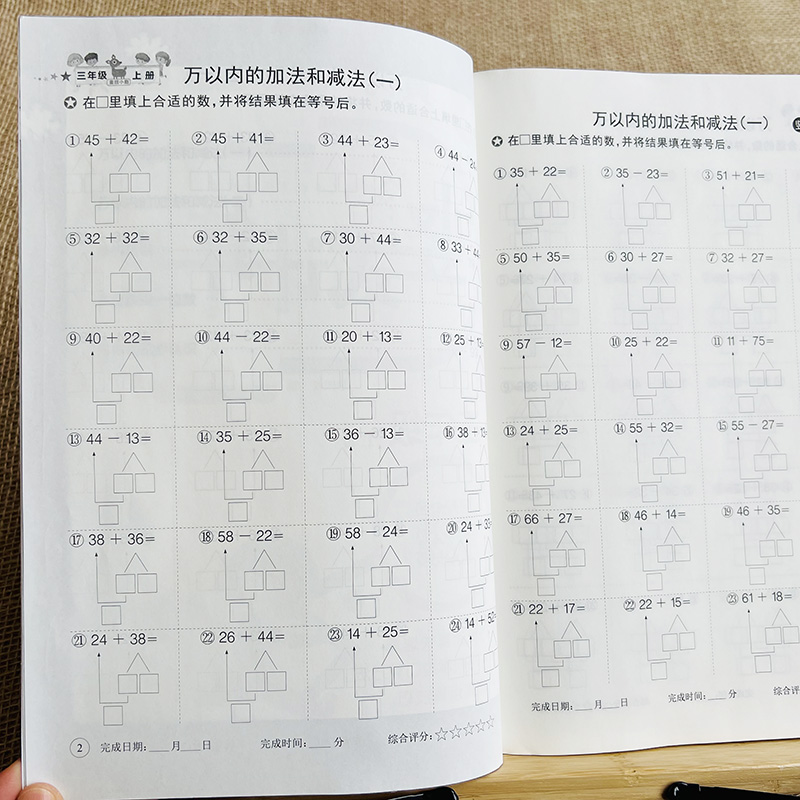 三年级 上册
万以内的加法和减法(一)
在□里填上合适的数,并将结果填在等号后。
① 45 + 42= ② 45 + 41= ③ 44 + 23= ④ 44 − 2
⑤ 32 + 32= ⑥ 32 + 35= ⑦ 30 + 44= ⑧ 33 + 44
⑨ 40 + 22= ⑩ 44 − 22= ⑪ 20 + 13= ⑫ 25 + 13
⑬ 44 − 13= ⑭ 35 + 25= ⑮ 36 − 13= ⑯ 38 + 13
⑰ 38 + 36= ⑱ 58 − 22= ⑲ 58 − 24= ⑳ 24 + 33
㉑ 24 + 38= ㉒ 26 + 44= ㉓ 14 + 25= ㉔ 14 + 52
2 完成日期:____月____日 完成时间:____分 综合评分:☆☆☆☆☆
万以内的加法和减法(一)
在□里填上合适的数,并将结果填在等号后。
① 35 + 22= ② 35 − 23= ③ 51 + 21=
⑤ 50 + 35= ⑥ 30 + 27= ⑦ 32 + 27=
⑨ 57 − 12= ⑩ 25 + 22= ⑪ 11 + 75=
⑬ 24 + 25= ⑭ 55 + 32= ⑮ 55 − 27=
⑰ 66 + 27= ⑱ 46 + 14= ⑲ 46 + 35=
㉑ 22 + 17= ㉒ 22 + 15= ㉓ 61 + 18=
完成日期:____月____日 完成时间:____分 综合评